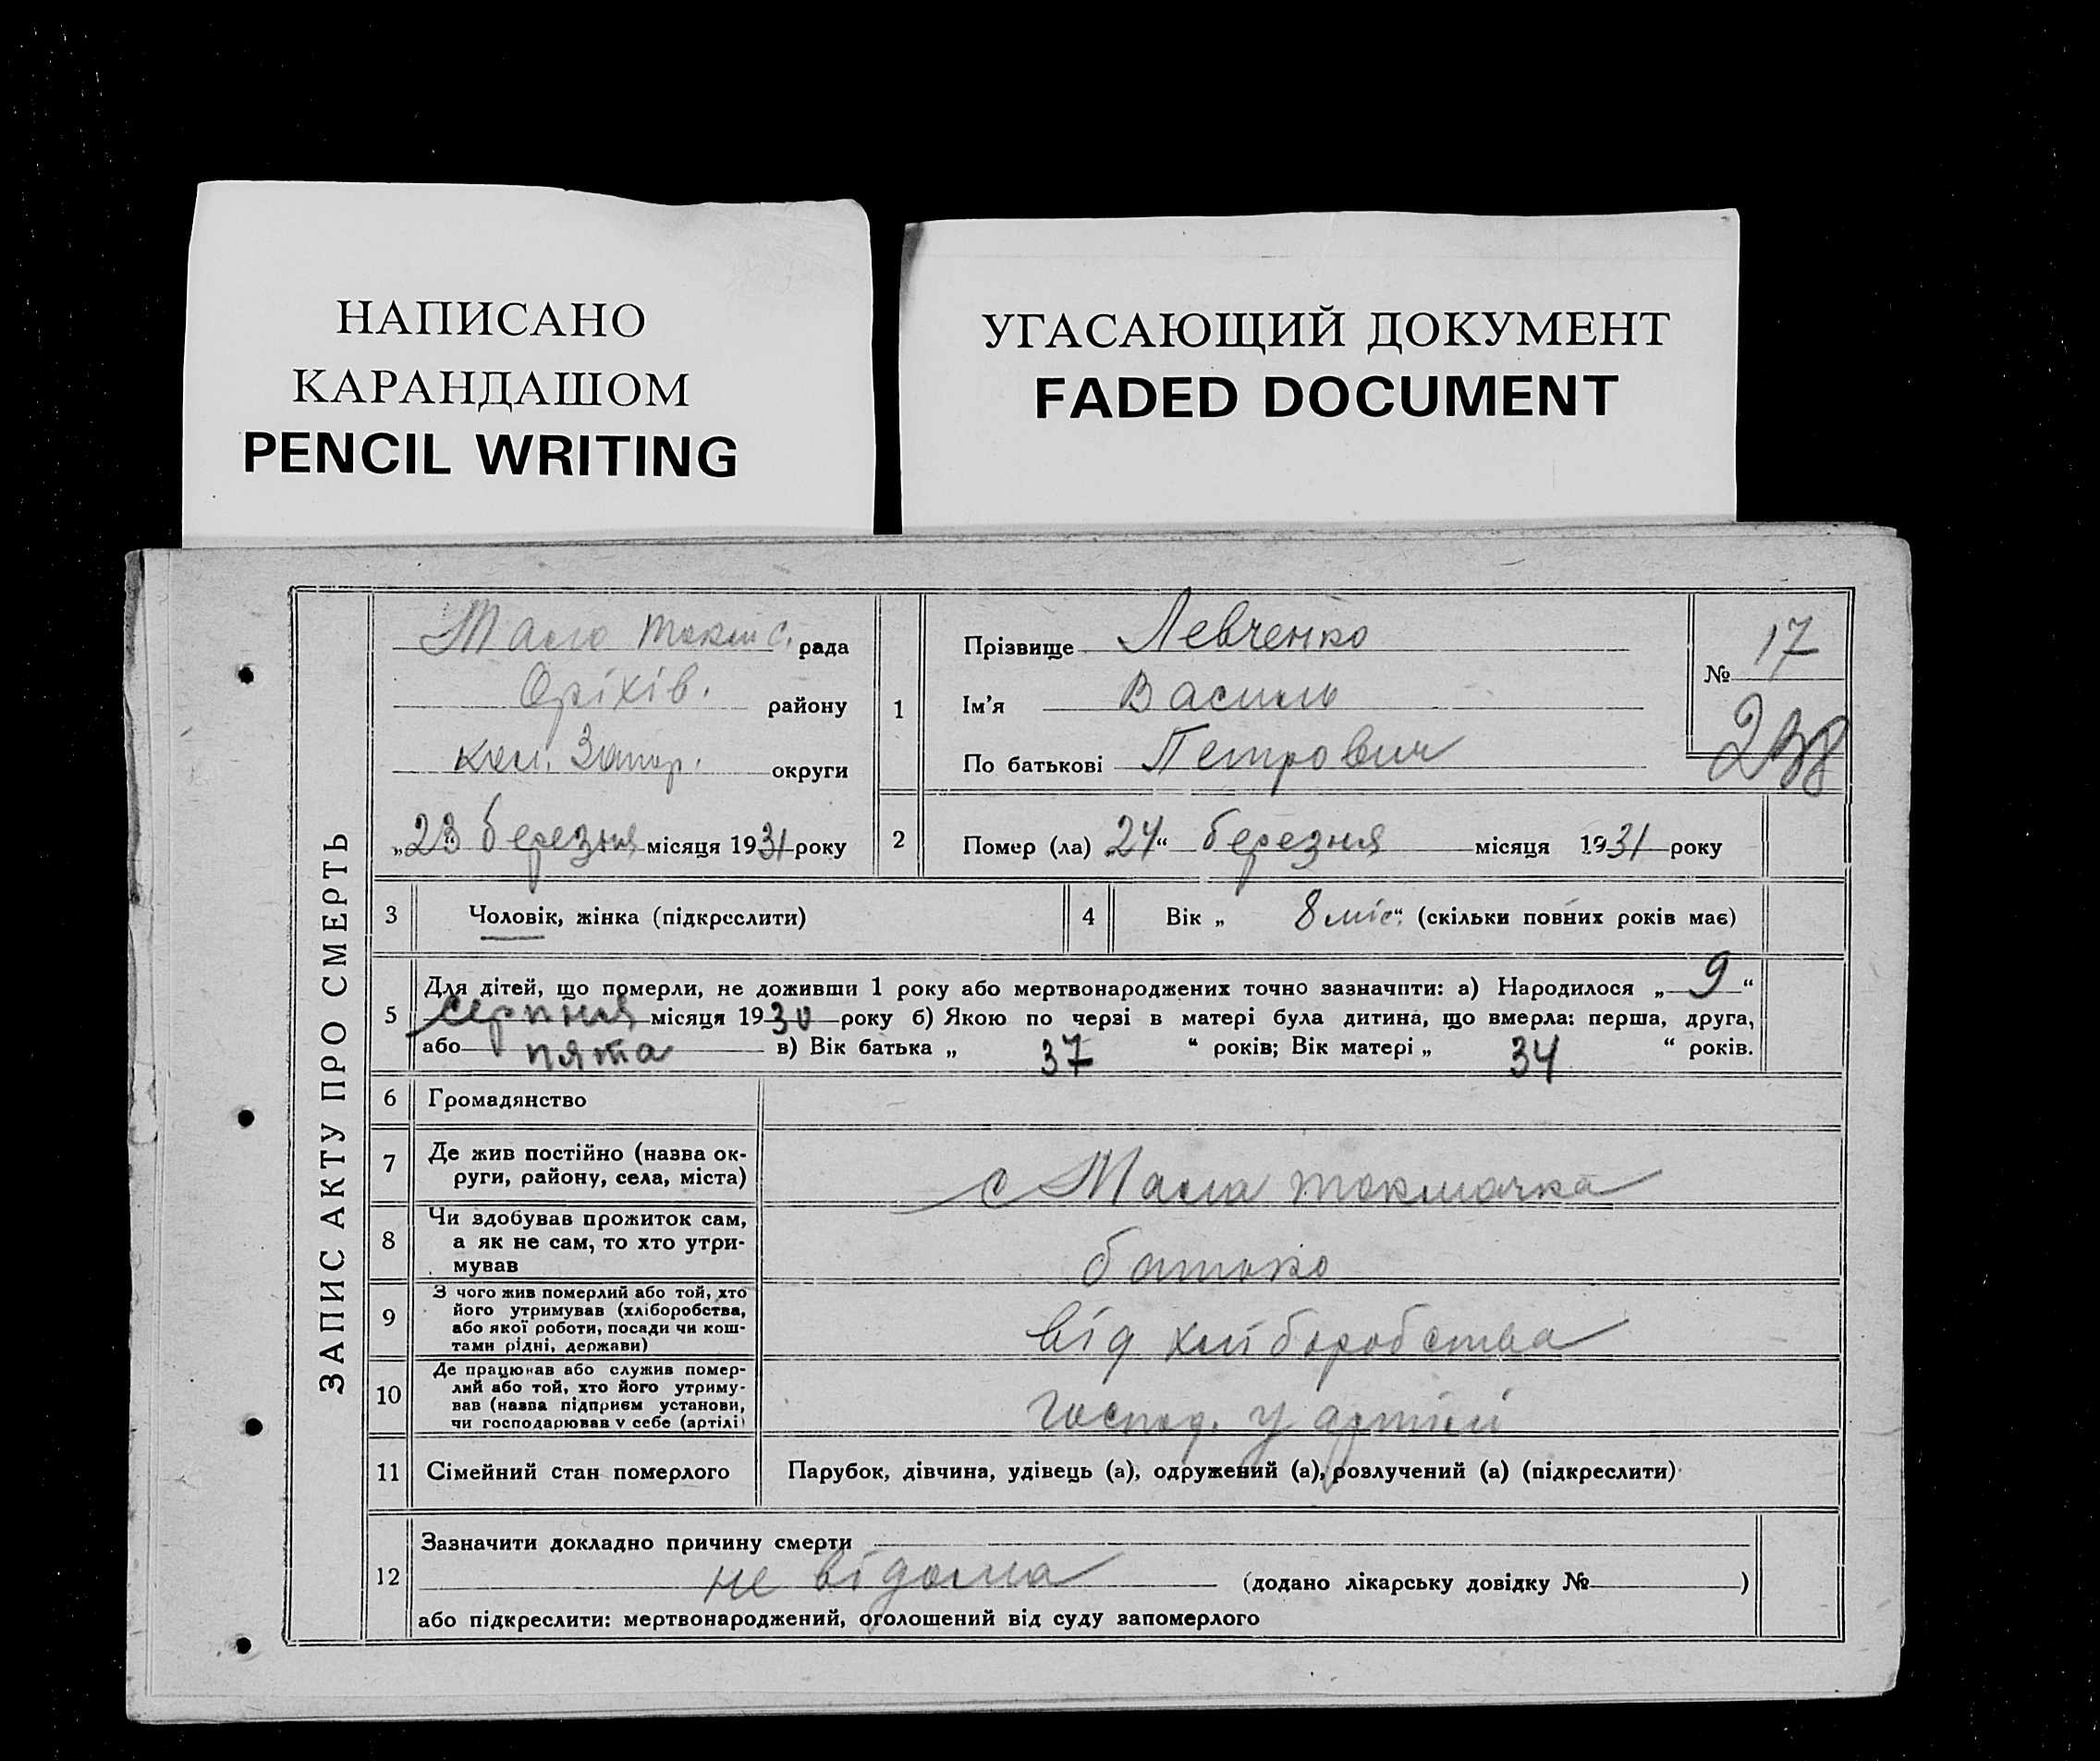 НАПИСАНО
КАРАНДАШОМ
PENCIL WRITING
УГАСАЮЩИЙ ДОКУМЕНТ
FADED DOCUMENT
ЗАПИС АКТУ ПРО СМЕРТЬ
Мало Токмс. рада
Оріхів. району
Запор. округи
„23 березня місяця 1931 року
1
Прізвище Левченко
Ім'я Василь
По батькові Петрович
№ 17
238
2 Помер (ла) 24“ березня місяця 1931 року
3 Чоловік, жінка (підкреслити)
4 Вік „ 8 міс.“ (скільки повних років має)
5 Для дітей, що померли, не доживши 1 року або мертвонароджених точно зазначити: а) Народилося „ 9 “
серпня місяця 1930 року б) Якою по черзі в матері була дитина, що вмерла: перша, друга,
або пята в) Вік батька „ 37 “ років; Вік матері „ 34 “ років.
6 Громадянство
7 Де жив постійно (назва ок-
руги, району, села, міста)
с Мала токмачка
8 Чи здобував прожиток сам,
а як не сам, то хто утри-
мував
батько
9 З чого жив померлий або той, хто
його утримував (хліборобства,
або якої роботи, посади чи кош-
тами рідні, держави)
від хліборобства
10 Де працював або служив помер-
лий або той, хто його утриму-
вав (назва підприєм установи,
чи господарював у себе (артілі)
господ. у артілі
11 Сімейний стан померлого
Парубок, дівчина, удівець (а), одружений (а), розлучений (а) (підкреслити)
12 Зазначити докладно причину смерти
не відома (додано лікарську довідку № )
або підкреслити: мертвонароджений, оголошений від суду запомерлого